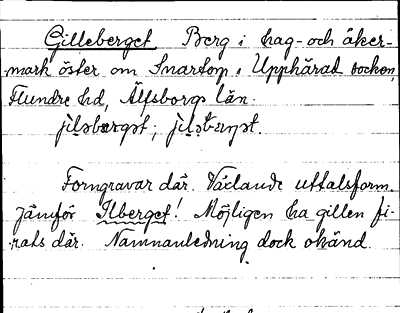 Gilleberget Berg i hag- och åker-
mark öster om Snartorp i Upphärad socken,
Flundre hd, Älfsborgs län.
jiləbærgət;
Forngravar där. Växlande uttalsform.
Jämför Ilberget! Möjligen ha gillen fi-
rats där. Namnanledning dock okänd.